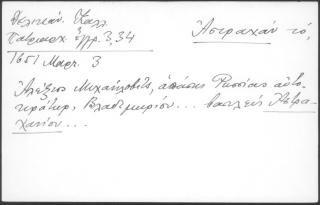 Δελικάν. Καλλ.
Πατριαρχ. ἔγγρ. 3, 34
Ἀστραχάν τό,
1651 Μαρτ. 3
Ἀλέξιος Μιχαήλοβιτς, ἁπάσης Ρωσσίας αὐτο-
κράτωρ, Βλαδιμηρίου... βασιλεύς Ἀστρα-
χανίου...